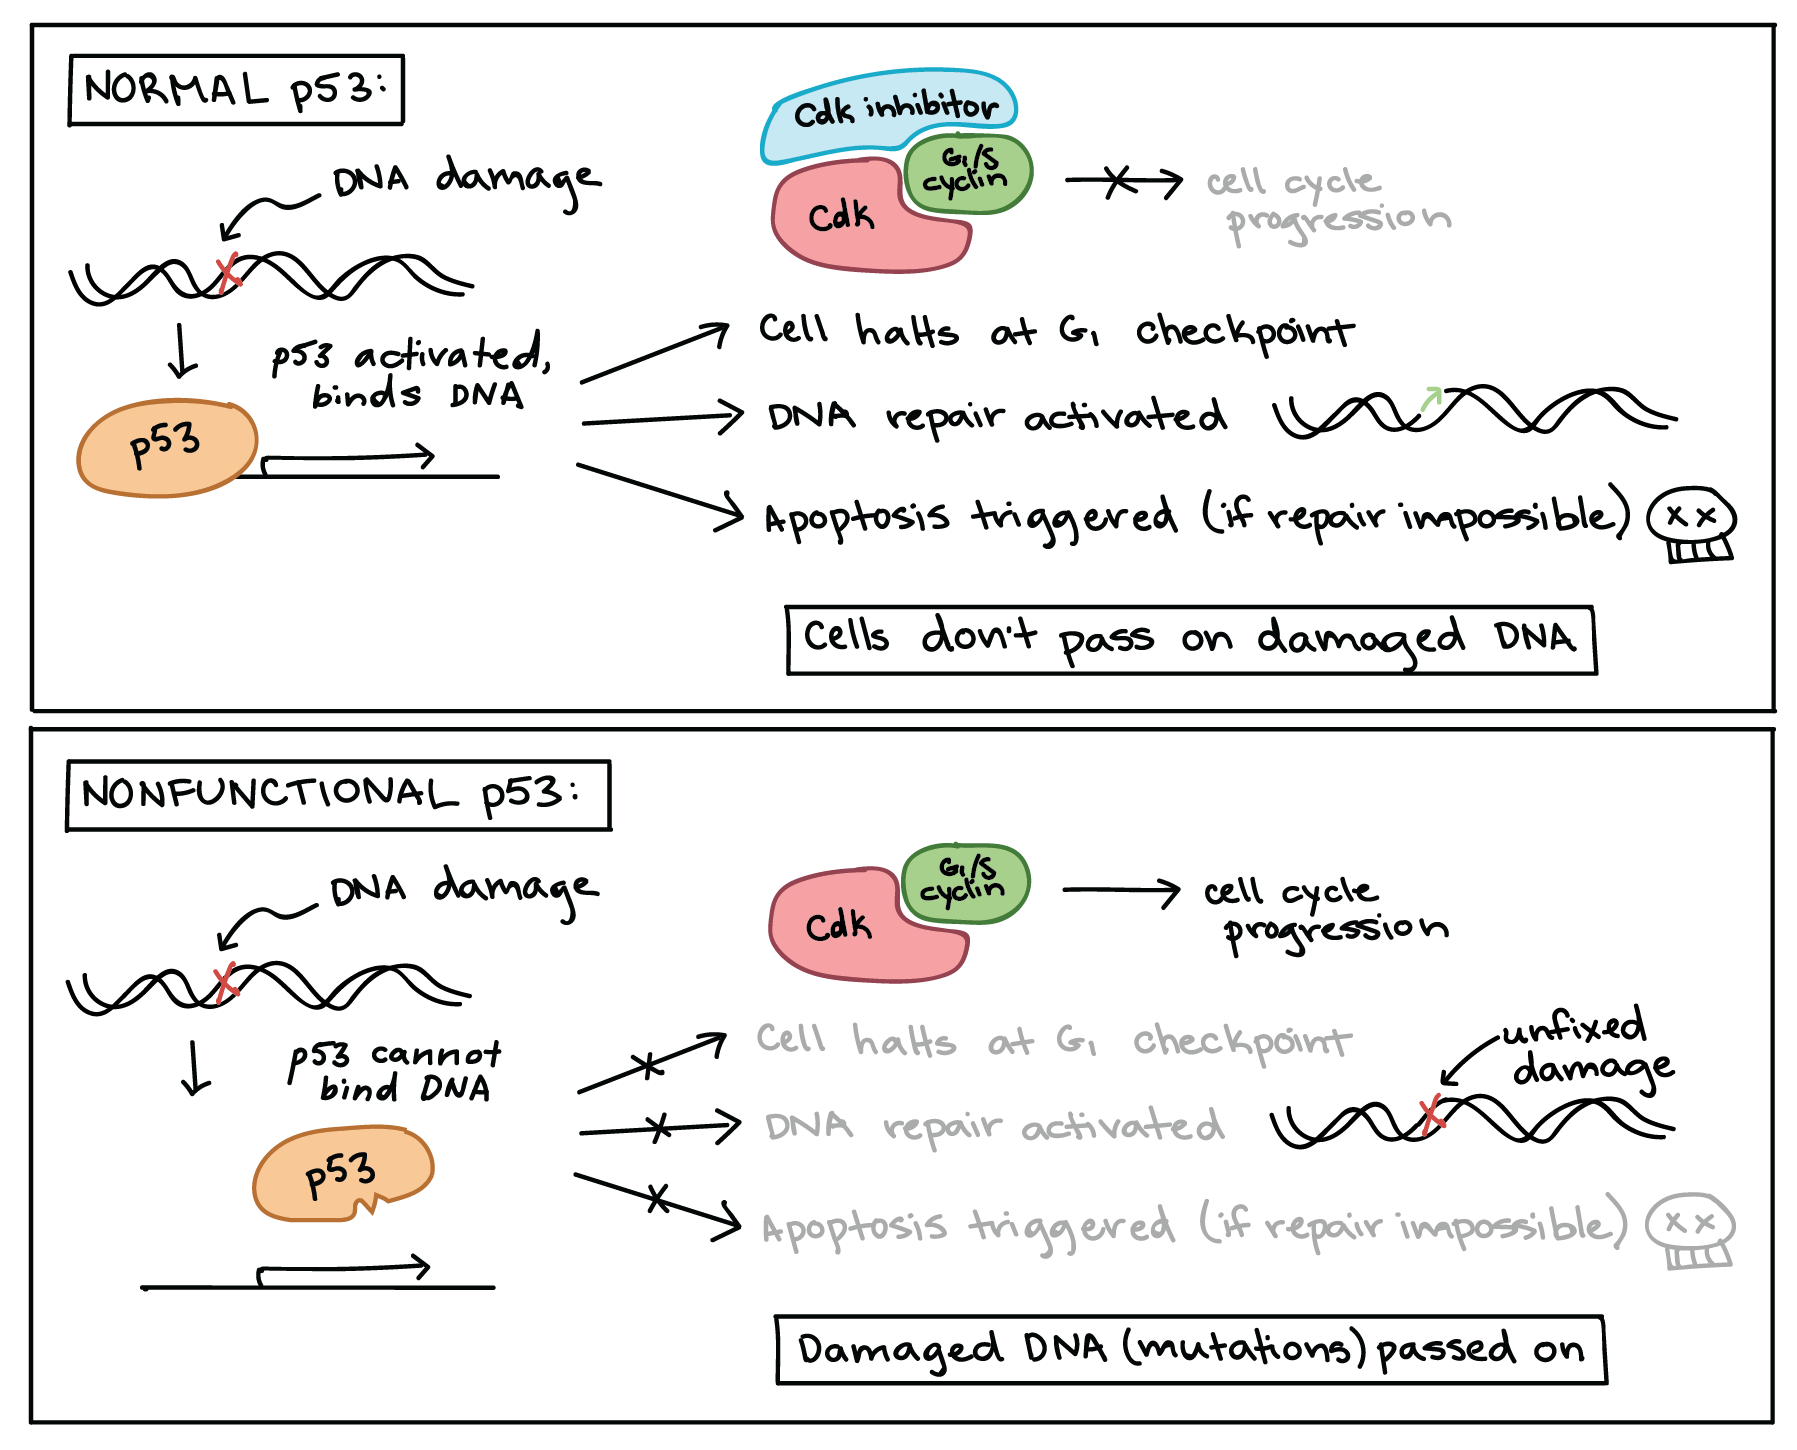 NORMAL p53:
DNA damage
p53 activated,
binds DNA
p53
Cdk inhibitor
G1/S
cyclin
Cdk
cell cycle
progression
Cell halts at G1 checkpoint
DNA repair activated
Apoptosis triggered (if repair impossible)
Cells don't pass on damaged DNA
NONFUNCTIONAL p53:
DNA damage
p53 cannot
bind DNA
p53
G1/S
cyclin
Cdk
cell cycle
progression
Cell halts at G1 checkpoint
unfixed
damage
DNA repair activated
Apoptosis triggered (if repair impossible)
Damaged DNA (mutations) passed on